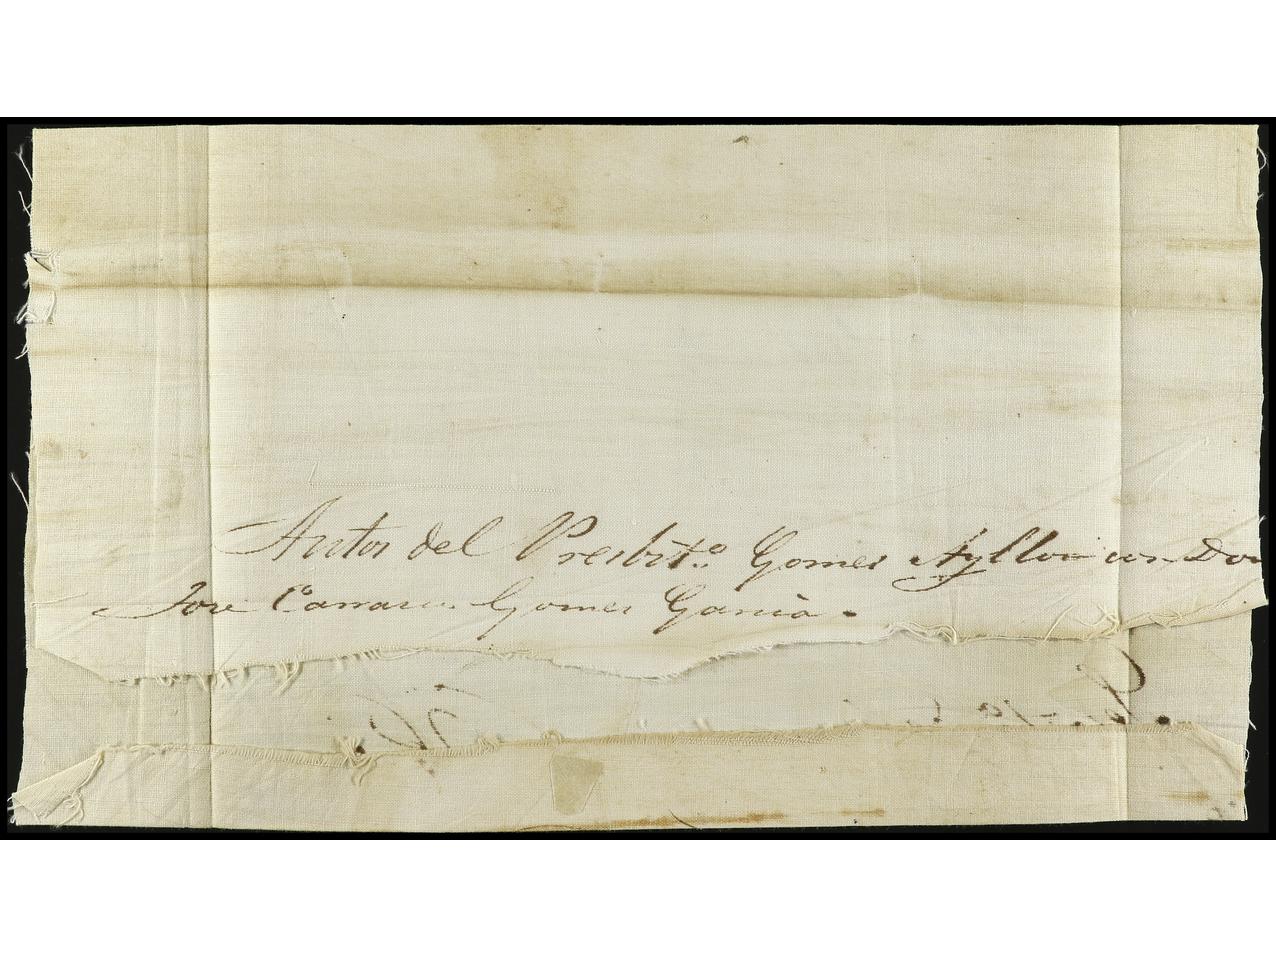 Autos del Presbit.o Gomes Ayllon con Don
José Carrasco Gomes Garcia.